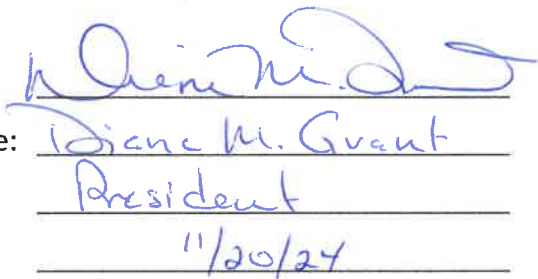 Diane M. Grant
e: Diane M. Grant
President
11/20/24